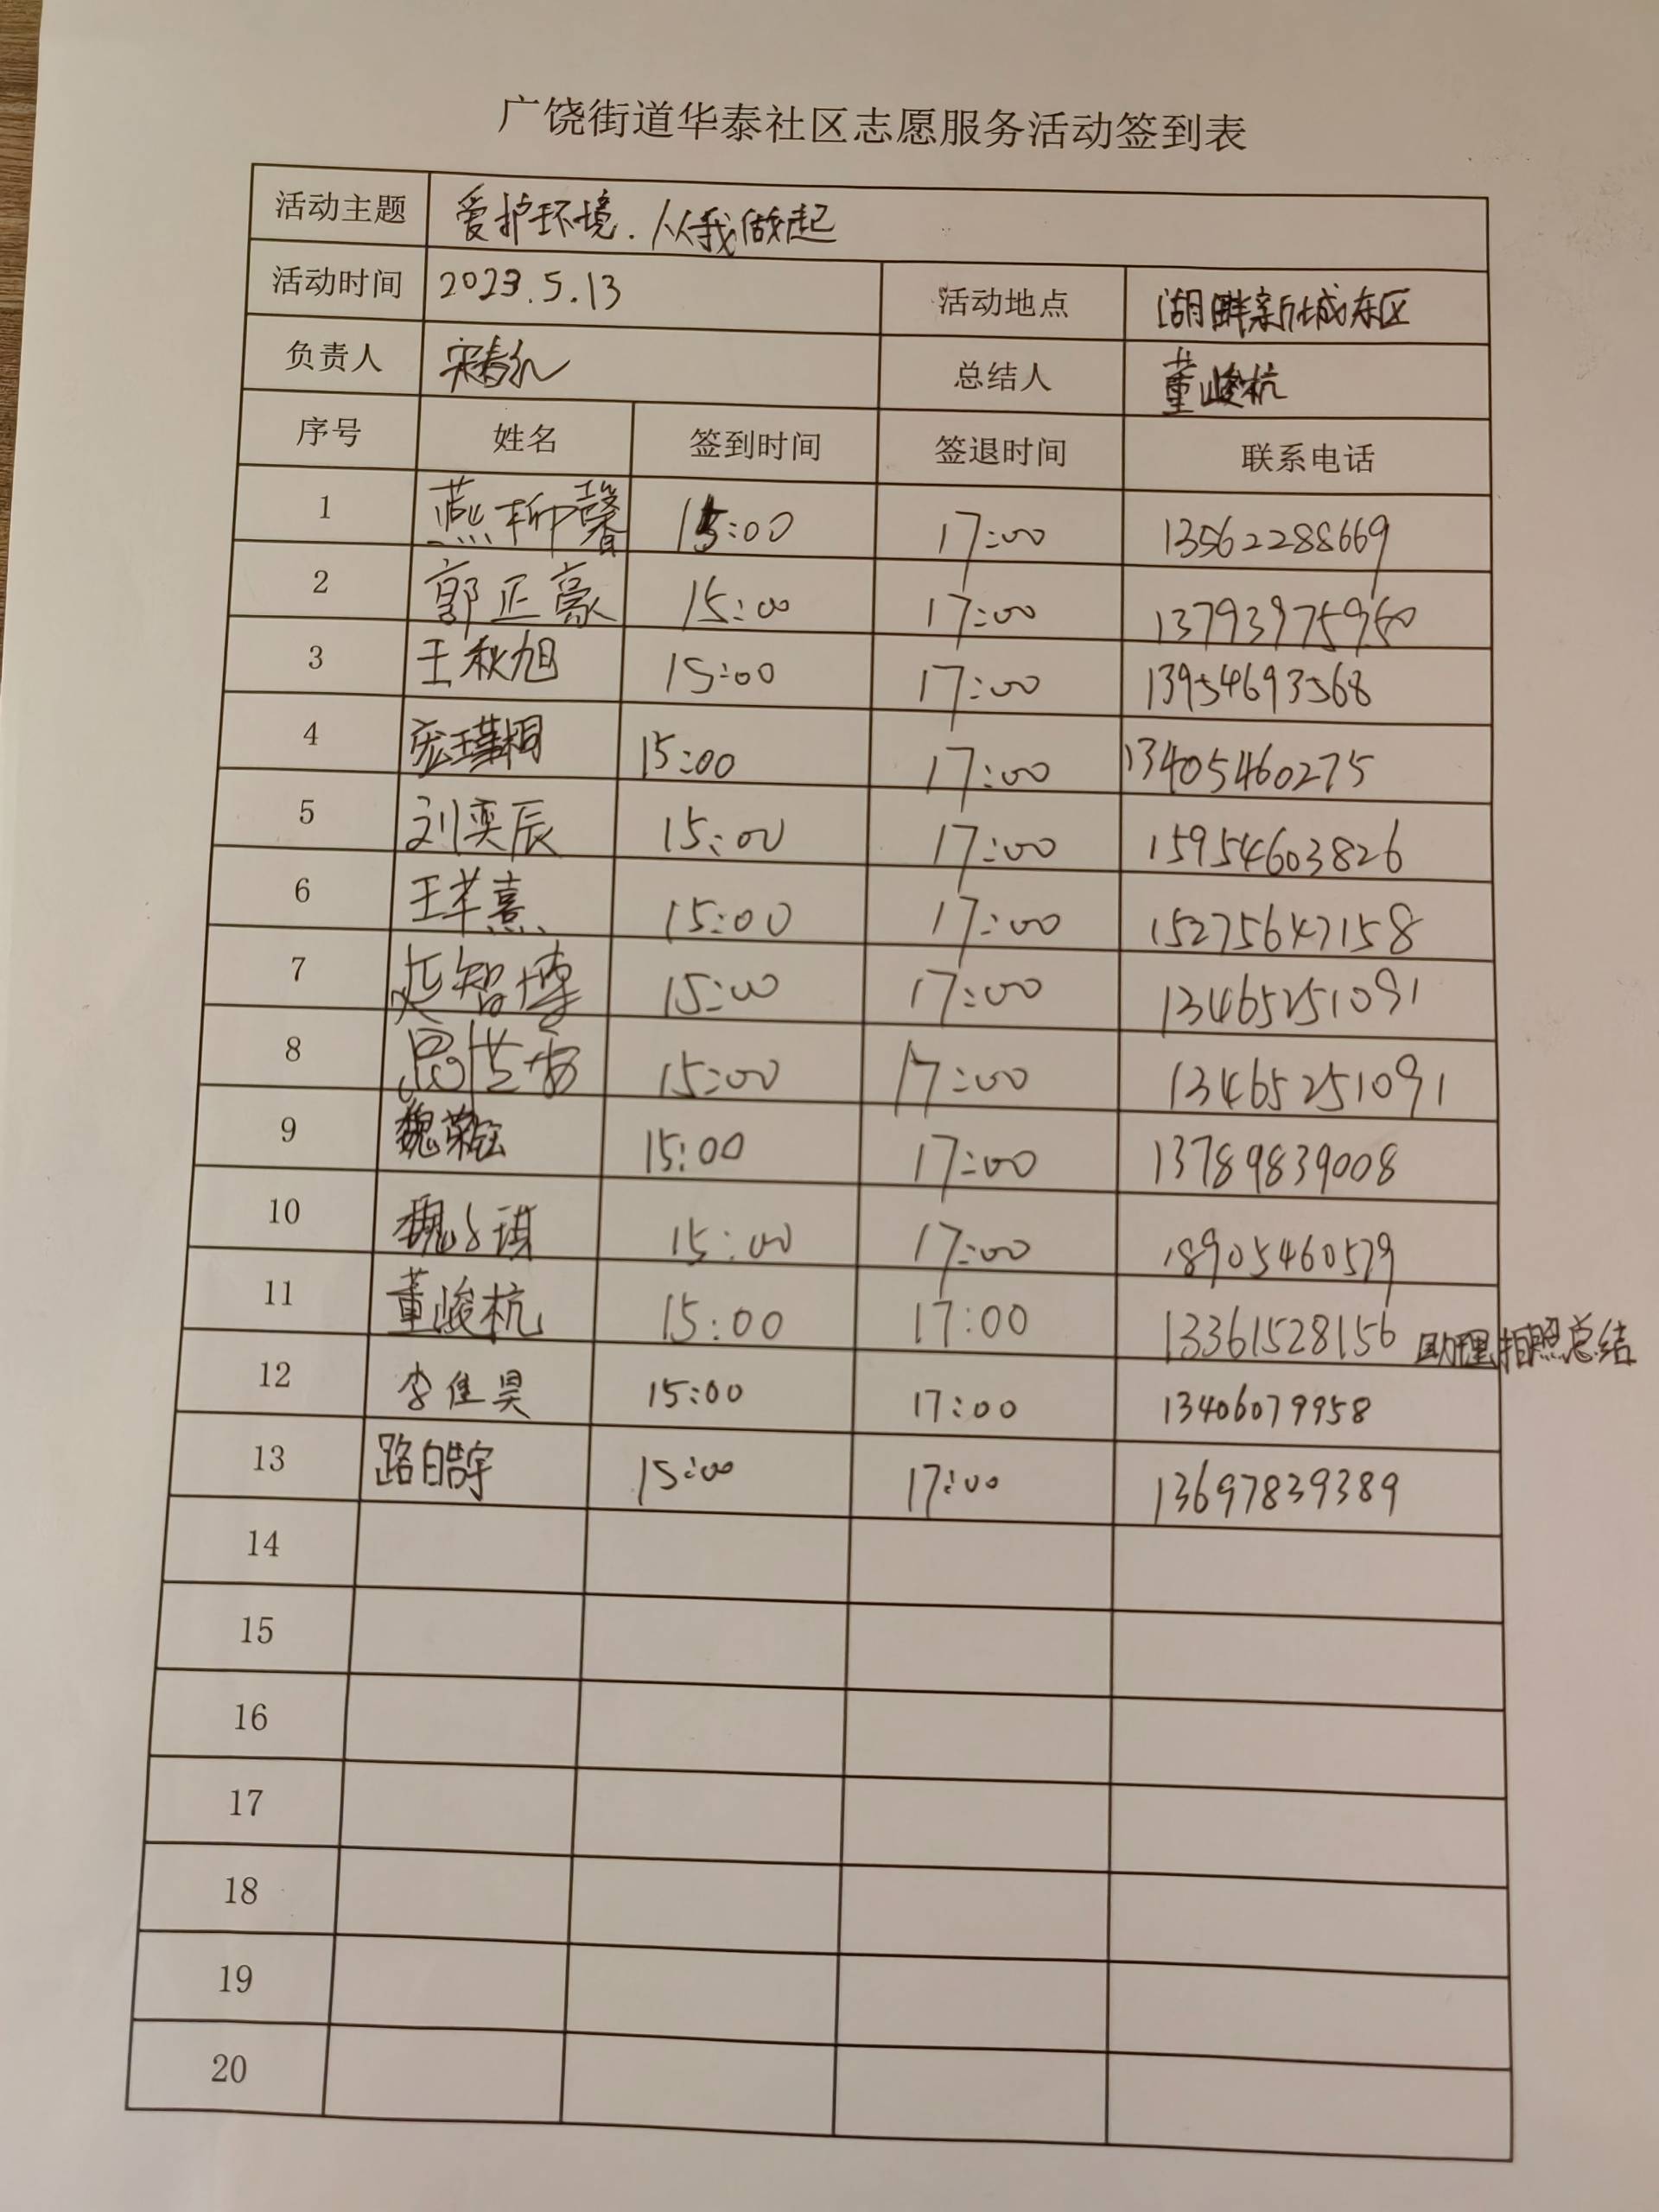 广饶街道华泰社区志愿服务活动签到表
活动主题 爱护环境.从我做起
活动时间 2023.5.13 活动地点 湖畔新城东区
负责人 总结人 董峻杭
序号 姓名 签到时间 签退时间 联系电话
1 燕柳馨 15:00 17:00 13562288669
2 郭正豪 15:00 17:00 13793975950
3 王秋旭 15:00 17:00 13954693568
4 15:00 17:00 13405460275
5 刘奕辰 15:00 17:00 15954603826
6 王苹熹 15:00 17:00 15275647158
7 延智博 15:00 17:00 13465251091
8 15:00 17:00 13465251091
9 15:00 17:00 13789839008
10 魏子琪 15:00 17:00 18905460579
11 董峻杭 15:00 17:00 13361528156 助理拍照总结
12 李佳昊 15:00 17:00 13406079958
13 路皓宇 15:00 17:00 13697839389
14
15
16
17
18
19
20